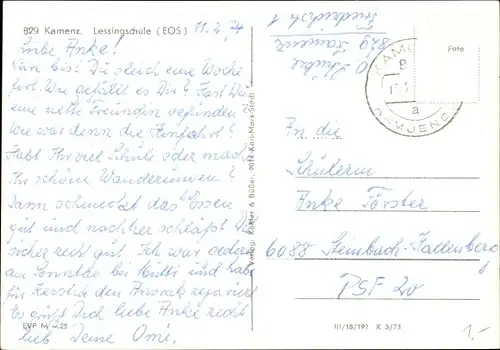 829 Kamenz. Lessingschule (EOS)
11.2.74
Liebe Anke!
Nun bist Du gleich eine Woche
fort. Wie gefällt es Dir? Hast Du
eine nette Freundin gefunden
Wie war denn die Hinfahrt?
Habt Ihr viel Schule oder macht
Ihr schöne Wanderungen?
Dann schmeckt das Essen
gut und nachher schläfst Du
sicher recht gut. Ich war
am Sonntag bei Mutti und habe
für Kerstin den Anorak repariert
Es grüßt Dich, liebe Anke recht
lieb Deine Omi.
EVP M -.25
829 Kamenz
Foto
KAMENZ
a
An die
Schülerin
Anke Förster
6088 Steinbach-Hallenberg
PSF 20
III/18/191 K 3/73
1,-